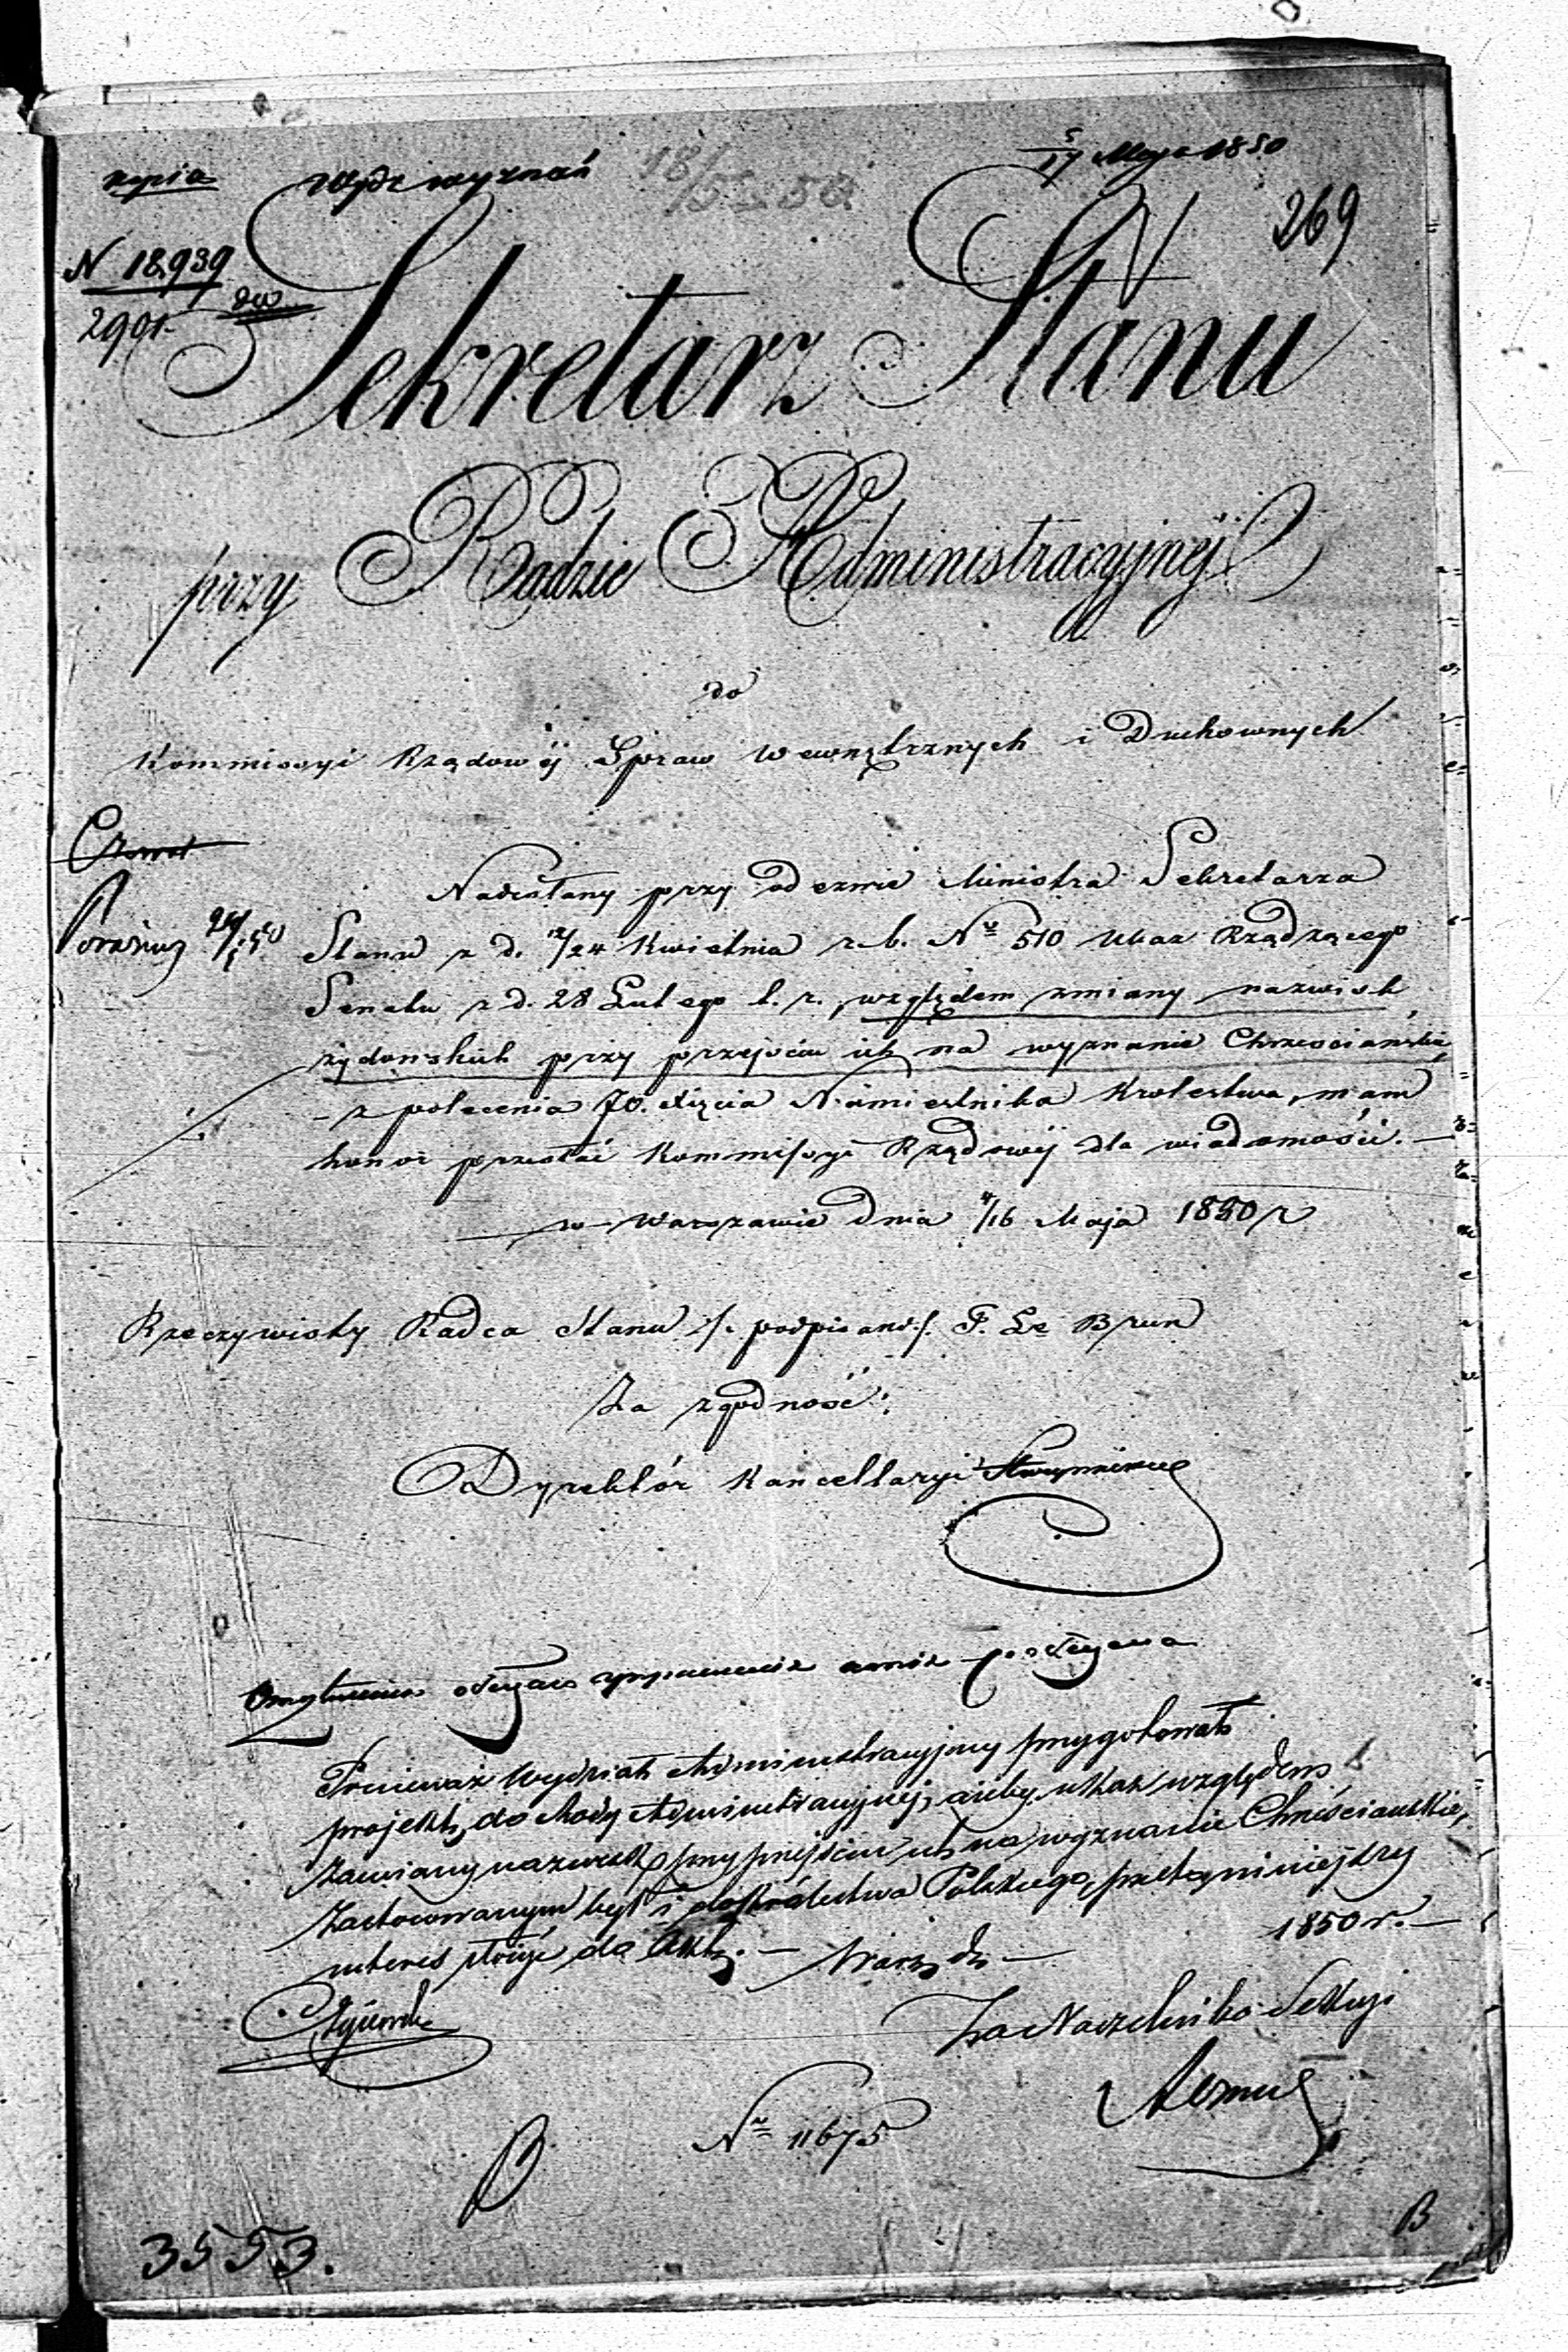 kopia Wydz wyznań 18/5 50. 5/17 Maja 1850
269
N 18,939
2901
Sekretarz Stanu
przy Radzie Administracyjnéj
do
Kommissyi Rządowéj Spraw Wewnętrznych i Duchownych
Nadesłany przy odezwie Ministra Sekretarza
Stanu z d. 12/24 Kwietnia r. b. Nr 510 Ukaz Rządzącego
Senatu z d. 28 Lutego t. r., względem zmiany nazwisk
żydowskich przy przejściu ich na wyznanie Chrześciańskie,
– z polecenia JO. Xięcia Namiestnika Królestwa, mam
honor przesłać Kommissyi Rządowéj dla wiadomości. –
w Warszawie dnia 4/16 Maja 1850 r
Rzeczywisty Radca Stanu /: podpisano :/ F. Le Brun
Za zgodność:
Dyrektór Kancellaryi
Ponieważ Wydział Administracyjny przygotował
projekt, do Rady Administracyjnéj, ażeby ukaz względem
zamiany nazwisk przy przejściu ich na wyznanie Chrześciańskie,
zastosowanym był i do Królestwa Polskiego, przeto niniejszy
interes złożyć do Akt. – Warsz d. – 1850 r. –
Za Naczelnika Sekcyi
Nr 11675
B
3553.